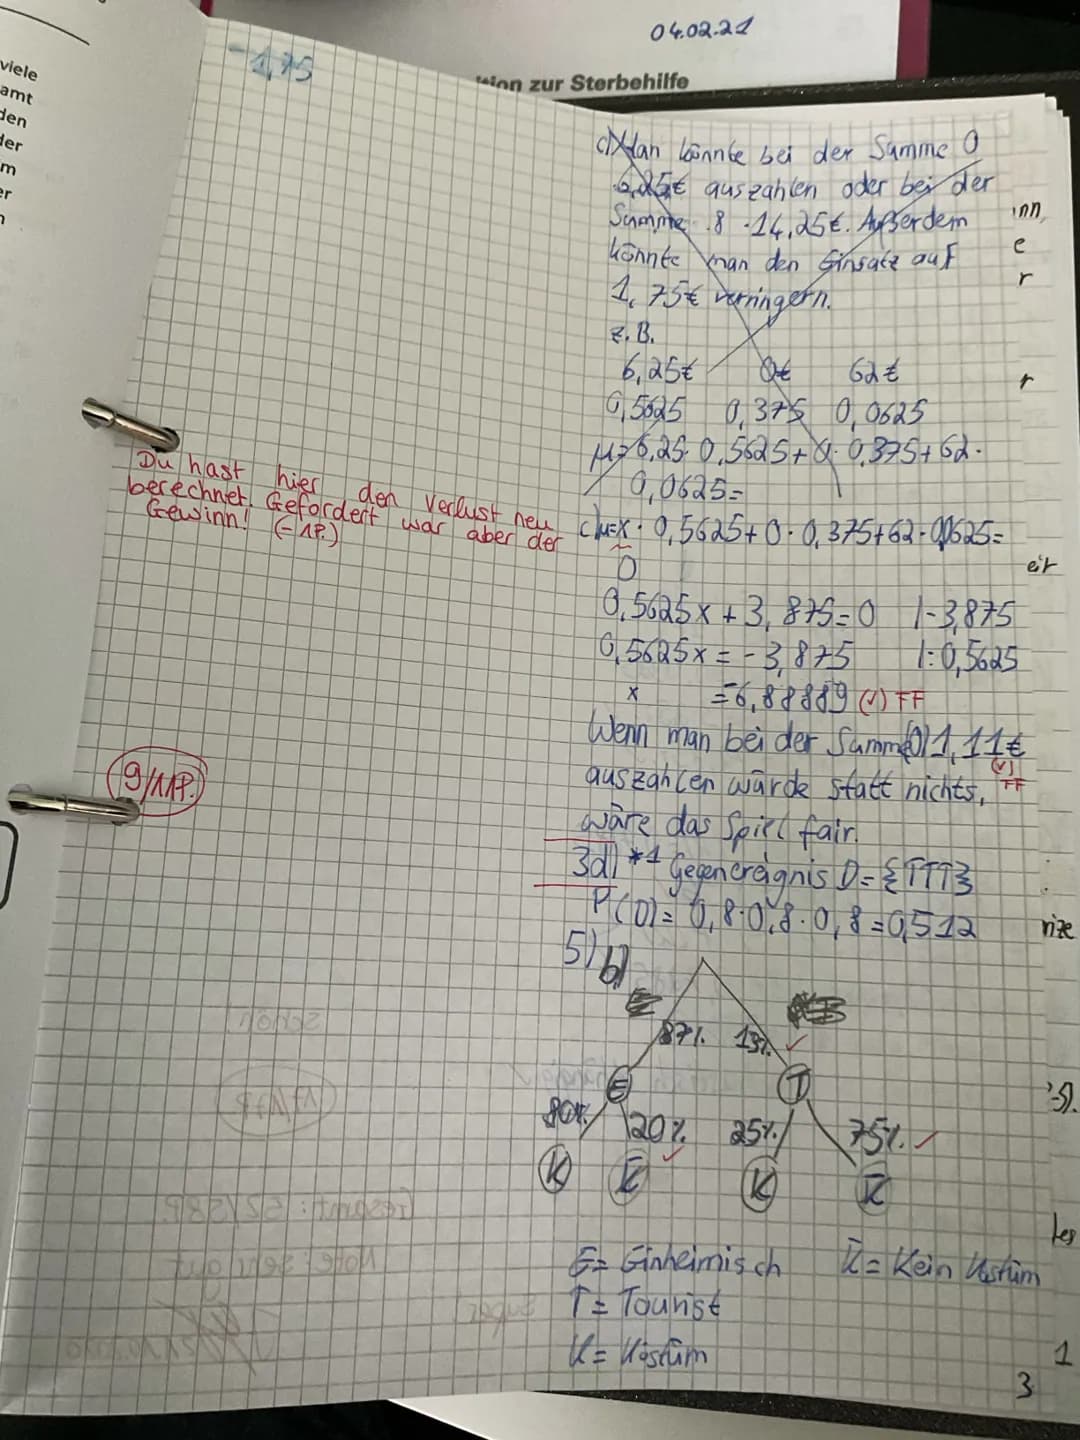 04.02.21
tion zur Sterbehilfe
viele
amt
den
der
m
er
n
-1,75
c) Man könnte bei der Summe 0
6,25€ auszahlen oder bei der
Summe 8 14,25€. Außerdem
könnte man den Einsatz auf
1,75€ verringern.
z.B.
6,25€ 0€ 62€
0,5625 0,375 0,0625
μ=6,25·0,5625+0·0,375+62·
0,0625=
Du hast hier den Verlust neu
berechnet. Gefordert war aber der
Gewinn! (-1P.)
c) μ=x·0,5625+0·0,375+62·0,0625=
0
0,5625x+3,875=0 |-3,875
0,5625x=-3,875 |:0,5625
x =-6,88889 (✓) FF
Wenn man bei der Summe(0) 1,11€
(✓) FF
auszahlen würde statt nichts,
wäre das Spiel fair.
9/11P.
3d) *1 Gegenereignis D={TTT}
P(D)=0,8·0,8·0,8=0,512
5) b)
87% 13% ✓
E T
80% 20% ✓ 25% 75% ✓
K K̅ K K̅
E= Einheimisch K̅= Kein Kostüm
T= Tourist
K= Kostüm
inn,
e
r
r
eit
nize
-5).
1
3
schön!
17/17P.
Gesamt: 52/58P.
Note: sehr gut
super!